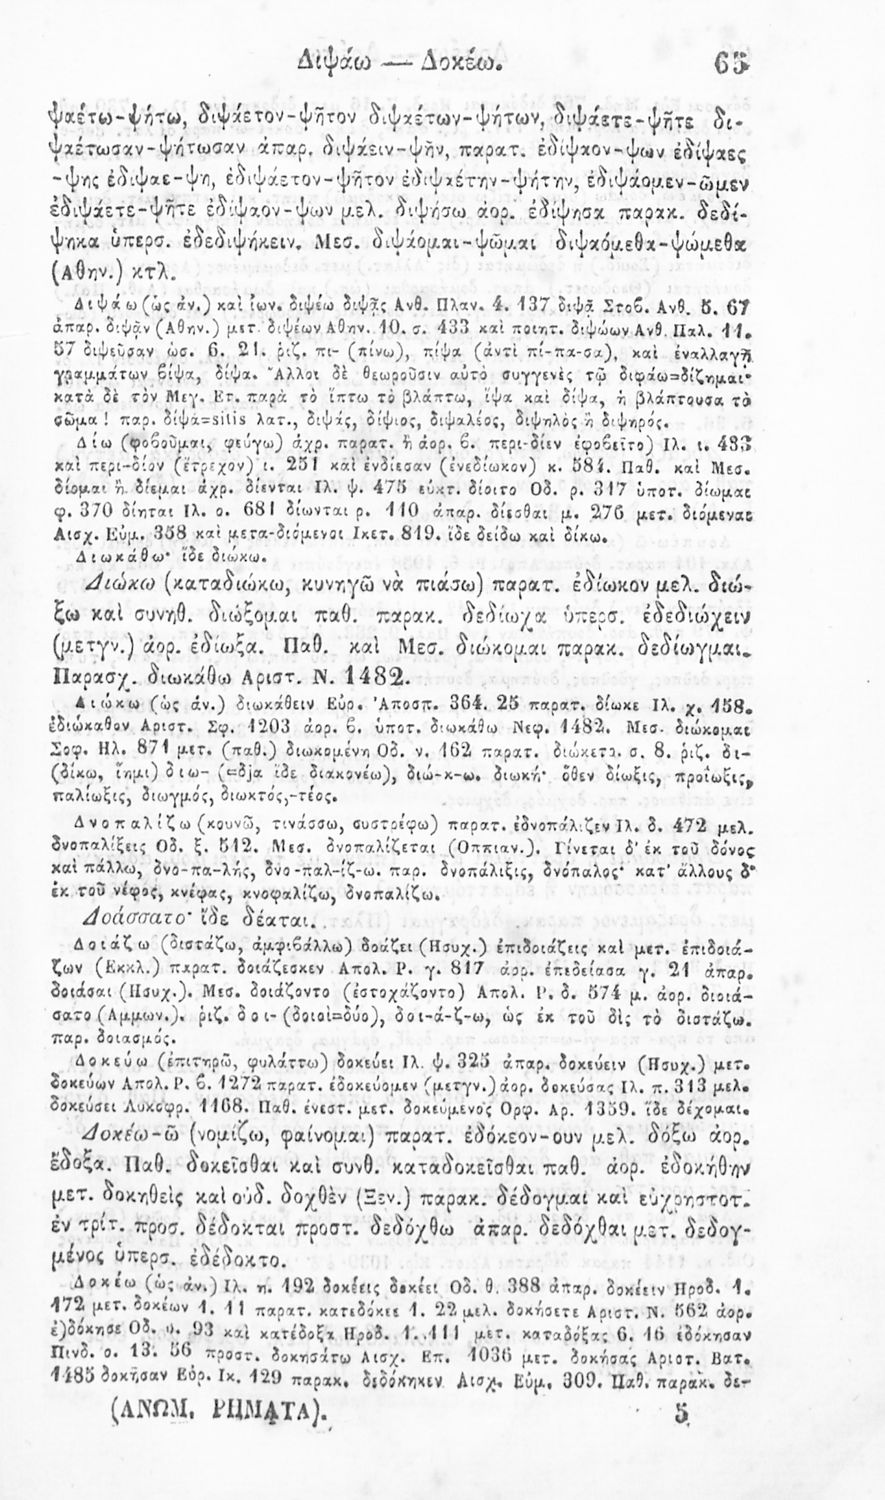 Διψάω — Δοκέω. 65
ψαέτω-ψήτω, διψάετον-ψῆτον διψαέτων-ψήτων, διψάετε-ψῆτε δι-
ψαέτωσαν-ψήτωσαν ἀπαρ. διψάειν-ψῆν, παρατ. ἐδίψαον-ψων ἐδίψαες
-ψης ἐδίψαε-ψη, ἐδιψάετον-ψῆτον ἐδιψαέτην-ψήτην, ἐδιψάομεν-ῶμεν
ἐδιψάετε-ψῆτε ἐδίψαον-ψων μελ. διψήσω ἀορ. ἐδίψησα παρακ. δεδί-
ψηκα ὑπερσ. ἐδεδιψήκειν. Μεσ. διψάομαι-ψῶμαι διψαόμεθα-ψώμεθα
(Αθην.) κτλ.
Διψάω (ὡς ἀν.) καὶ ἰων. διψέω διψᾷς Ανθ. Πλαν. 4. 137 διψᾷ Στοβ. Ανθ. 5. 67
ἀπαρ. διψᾶν (Αθην.) μετ. διψέων Αθην. 10. σ. 433 καὶ ποιητ. διψώων Ανθ. Παλ. 11.
57 διψεῦσαν ὡσ. 6. 21. ῥιζ. πι- (πίνω), πίψα (ἀντὶ πί-πα-σα), καὶ ἐναλλαγῇ
γραμμάτων βίψα, δίψα. Ἄλλοι δὲ θεωροῦσιν αὐτὸ συγγενὲς τῷ διφάω=δίζημαι·
κατὰ δὲ τὸν Μεγ. Ετ. παρὰ τὸ ἵπτω τὸ βλάπτω, ἵψα καὶ δίψα, ἡ βλάπτουσα τὸ
σῶμα! παρ. δίψα=sitis λατ., διψάς, δίψιος, διψαλέος, διψηλὸς ἢ διψηρός.
Δίω (φοβοῦμαι, φεύγω) ἀχρ. παρατ. ἢ ἀορ. β. περι-δίεν ἐφοβεῖτο) Ιλ. ι. 433
καὶ περι-δίον (ἔτρεχον) ι. 251 καὶ ἐνδίεσαν (ἐνεδίωκον) κ. 584. Παθ. καὶ Μεσ.
δίομαι ἢ δίεμαι ἀχρ. δίενται Ιλ. ψ. 475 εὐκτ. δίοιτο Οδ. ρ. 317 ὑποτ. δίωμαι
φ. 370 δίηται Ιλ. ο. 681 δίωνται ρ. 110 ἀπαρ. δίεσθαι μ. 276 μετ. διόμεναι
Αισχ. Εὐμ. 358 καὶ μετα-διόμενοι Ικετ. 819. ἴδε δείδω καὶ δίκω.
Διωκάθω· ἴδε διώκω.
Διώκω (καταδιώκω, κυνηγῶ νὰ πιάσω) παρατ. ἐδίωκον μελ. διώ-
ξω καὶ συνηθ. διώξομαι παθ. παρακ. δεδίωχα ὑπερσ. ἐδεδιώχειν
(μετγν.) ἀορ. ἐδίωξα. Παθ. καὶ Μεσ. διώκομαι παρακ. δεδίωγμαι.
Παρασχ. διωκάθω Αριστ. Ν. 1482.
Διώκω (ὡς ἀν.) διωκάθειν Εὐρ. Ἀποσπ. 364. 25 παρατ. δίωκε Ιλ. χ. 158.
ἐδιώκαθον Αριστ. Σφ. 1203 ἀορ. β. ὑποτ. διωκάθω Νεφ. 1482. Μεσ. διώκομαι
Σοφ. Ηλ. 871 μετ. (παθ.) διωκομένη Οδ. ν. 162 παρατ. διώκετο. σ. 8. ῥιζ. δι-
(δίκω, ἵημι) διω- (=dja ἴδε διακονέω), διώ-κ-ω. διωκή· ὅθεν δίωξις, προΐωξις,
παλίωξις, διωγμός, διωκτός,-τέος.
Δνοπαλίζω (κουνῶ, τινάσσω, συστρέφω) παρατ. ἐδνοπάλιζεν Ιλ. δ. 472 μελ.
δνοπαλίξεις Οδ. ξ. 512. Μεσ. δνοπαλίζεται (Οππιαν.). Γίνεται δ' ἐκ τοῦ δόνος
καὶ πάλλω, δνο-πα-λής, δνο-παλ-ίζ-ω. παρ. δνοπάλιξις, δνόπαλος· κατ' ἄλλους δ'
ἐκ τοῦ νέφος, κνέφας, κνοφαλίζω, δνοπαλίζω.
Δοάσσατο· ἴδε δέαται.
Δοιάζω (διστάζω, ἀμφιβάλλω) δοάζει (Ησυχ.) ἐπιδοιάζεις καὶ μετ. ἐπιδοιά-
ζων (Εκκλ.) παρατ. δοιάζεσκεν Απολ. Ρ. γ. 817 ἀορ. ἐπεδείασα γ. 21 ἀπαρ.
δοιάσαι (Ησυχ.). Μεσ. δοιάζοντο (ἐστοχάζοντο) Απολ. Ρ. δ. 574 μ. ἀορ. διοιά-
σατο (Αμμων.). ῥιζ. δοι- (δοιοὶ=δύο), δοι-ά-ζ-ω, ὡς ἐκ τοῦ δὶς τὸ διστάζω.
παρ. δοιασμός.
Δοκεύω (ἐπιτηρῶ, φυλάττω) δοκεύει Ιλ. ψ. 325 ἀπαρ. δοκεύειν (Ησυχ.) μετ.
δοκεύων Απολ. Ρ. β. 1272 παρατ. ἐδοκεύομεν (μετγν.) ἀορ. δοκεύσας Ιλ. π. 313 μελ.
δοκεύσει Λυκοφρ. 1168. Παθ. ἐνεστ. μετ. δοκευμένος Ορφ. Αρ. 1359. ἴδε δέχομαι.
Δοκέω-ῶ (νομίζω, φαίνομαι) παρατ. ἐδόκεον-ουν μελ. δόξω ἀορ.
ἔδοξα. Παθ. δοκεῖσθαι καὶ συνθ. καταδοκεῖσθαι παθ. ἀορ. ἐδοκήθην
μετ. δοκηθεὶς καὶ οὐδ. δοχθὲν (Ξεν.) παρακ. δέδογμαι καὶ εὐχρηστοτ.
ἐν τρίτ. προσ. δέδοκται προστ. δεδόχθω ἀπαρ. δεδόχθαι μετ. δεδογ-
μένος ὑπερσ. ἐδέδοκτο.
Δοκέω (ὡς ἀν.) Ιλ. η. 192 δοκέεις δοκέει Οδ. θ. 388 ἀπαρ. δοκέειν Ηροδ. 1.
172 μετ. δοκέων 1. 11 παρατ. κατεδόκεε 1. 22 μελ. δοκήσετε Αριστ. Ν. 562 ἀορ.
ἐ)δόκησε Οδ. υ. 93 καὶ κατέδοξα Ηροδ. 1. 111 μετ. καταδόξας 6. 16 ἐδόκησαν
Πινδ. ο. 13. 56 προστ. δοκησάτω Αισχ. Επ. 1036 μετ. δοκήσας Αριστ. Βατ.
1485 δοκῆσαν Εὐρ. Ικ. 129 παρακ. δεδόκηκεν Αισχ. Εὐμ. 309. Παθ. παρακ. δε-
(ΑΝΩΜ. ΡΗΜΑΤΑ). 5